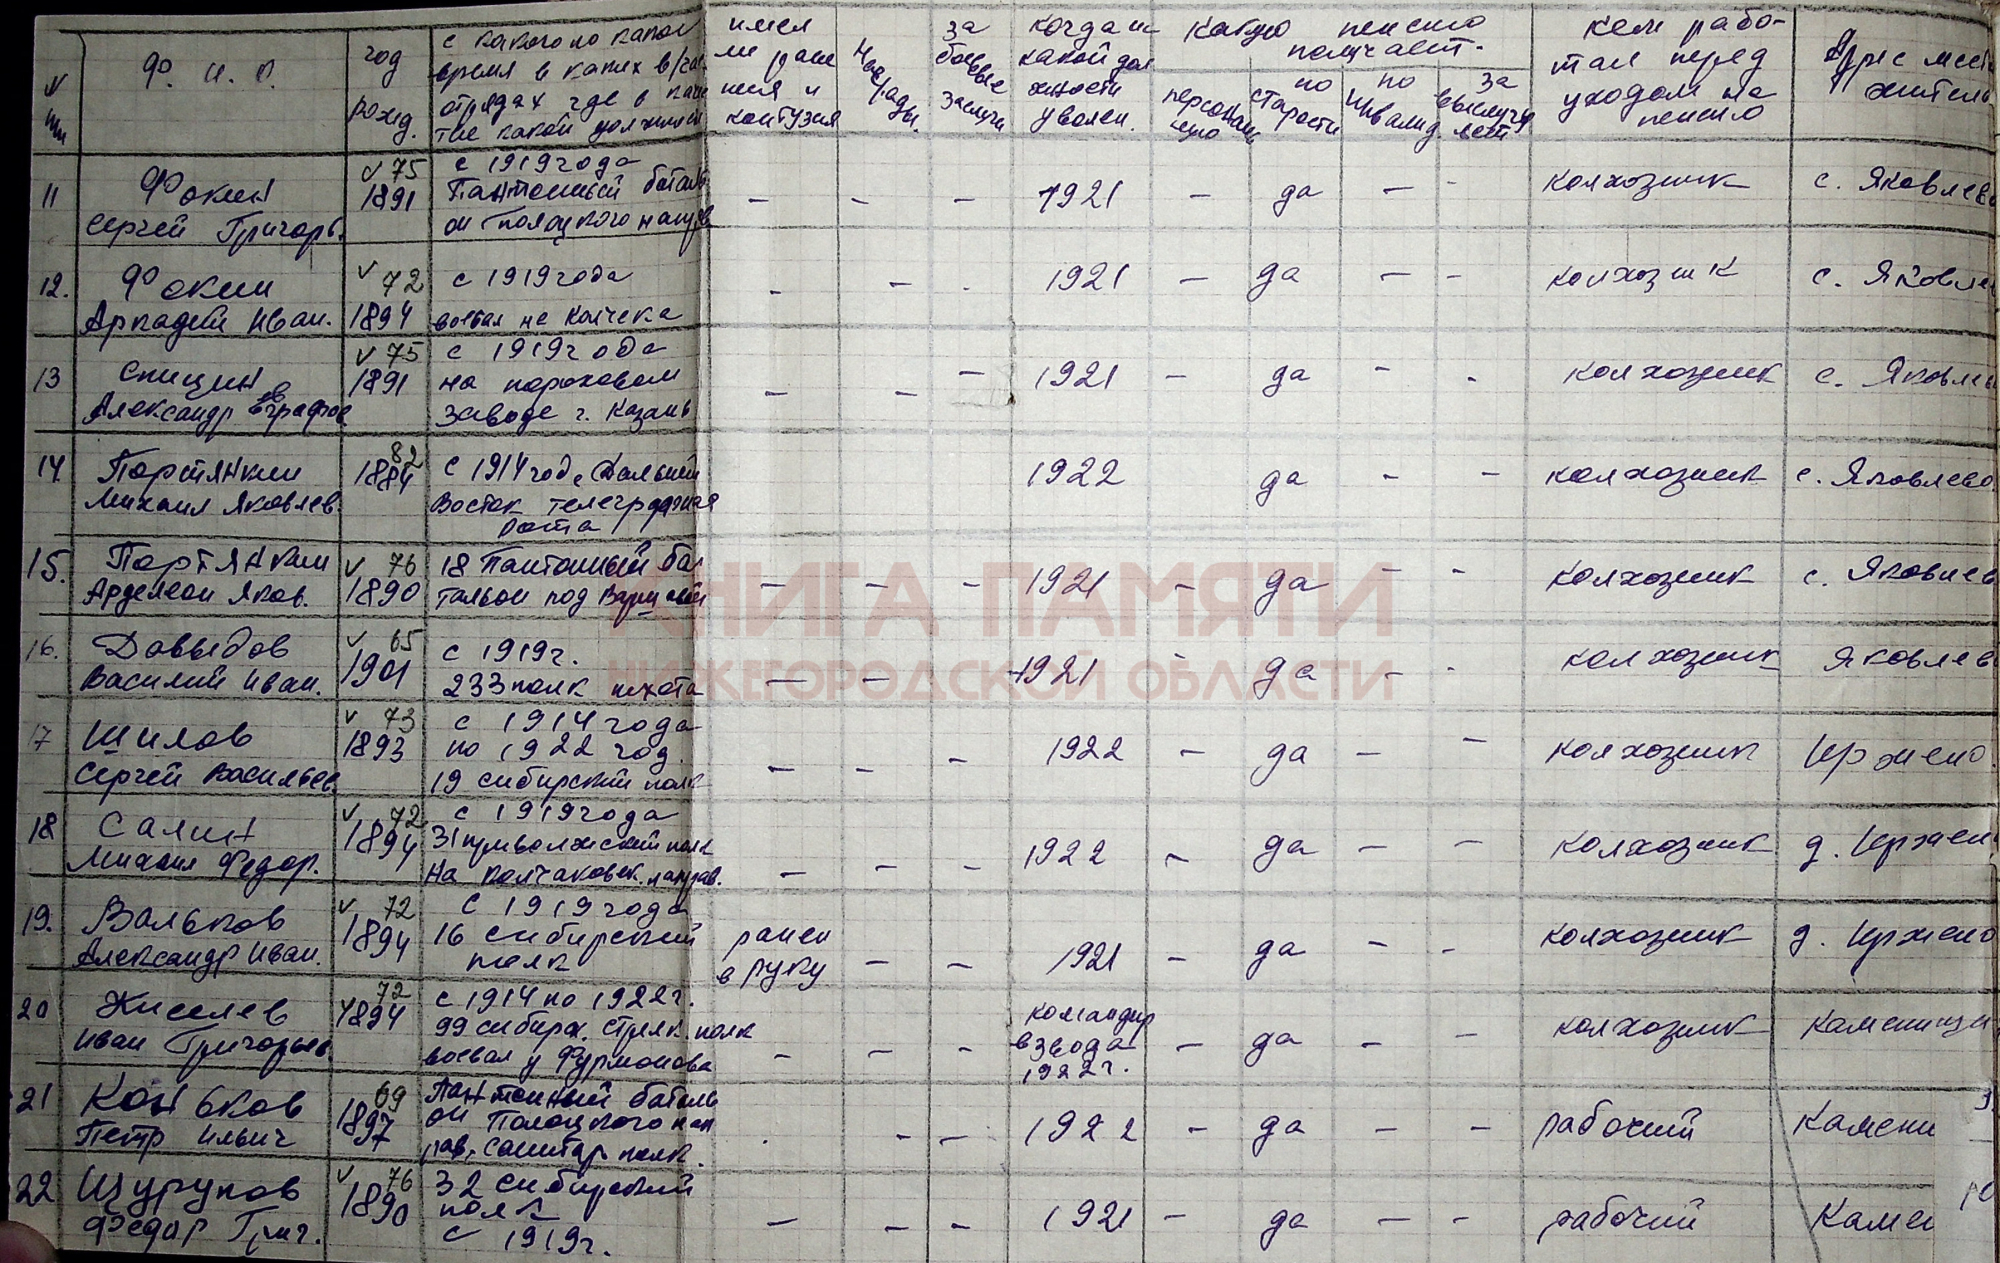 N
п/п
Ф. и. о.
год
рожд.
с какого по какое
время в каких в/час
отрядах где в каче
тве какой должности
имел
ли ране
ния и
контузия
Награды.
за
боевые
заслуги
когда и с
какой дол
жности
уволен.
Какую пенсию
получает.
персональ
ную
по
старости
по
инвалид.
за
выслугу
лет
кем рабо-
тал перед
уходом на
пенсию
Адрес места
жительс
11 Фокин v 75 с 1919 года
1891 Пантонный баталь
Сергей Григорь. он Полоцкого направ
— — — 1921 — да — — колхозник с. Яковлево
12. Фокин v 72 с 1919 года
Аркадий Иван. 1894 воевал на Колчека
— — — 1921 — да — — колхозник с. Яковлев
13 Спицин v 75 с 1919 года
1891 на пороховом
Александр Евграфов заводе г. Казань
— — — 1921 — да — — колхозник с. Яковлев
14. Портянкин 82 с 1914 год. Дальний
1884
Михаил Яковлев. Восток телеграфная
рота
1922 да — — колхозник с. Яковлево
15. Портянкин v 76 18 Пантонный ба
Арделеон Яков. 1890 тальон под Варшавой
— — — 1921 — да — — колхозник с. Яковлев
16. Давыдов v 65 с 1919 г.
Василий Иван. 1901 233 полк пехота
— — 1921 — да — — колхозник Яковлев
17 Шилов v 73 с 1914 года
1893 по 1922 год.
Сергей Васильев. 19 сибирский полк
— — — 1922 — да — — колхозник Иржено
18 Салин v 72 с 1919 года
1894 31 приволжский полк
Михаил Федор. на колчаковск. направ.
— — — 1922 — да — — колхозник д. Иржен
19. Вальков v 72 с 1919 года
1894 16 сибирский
Александр Иван. полк
ранен
в руку
— — 1921 — да — — колхозник д. Иржено
20 Киселев 72 с 1914 по 1922 г.
1894 99 сибирск. стрелк. полк
Иван Григорьев воевал у Фурмонова
— — — командир
взвода
1922 г.
— да — — колхозник Каменищи
21 Коньков 69 Пантонный баталь
1897 он Полоцкого нап
Петр Ильич рав, санитар полк.
— — 1922 — да — — рабочий Камени
22 Щурупов v 76 32 сибирский
1890 полк
Федор Григ. с 1919 г.
— — — 1921 — да — — рабочий Камен
КНИГА ПАМЯТИ
НИЖЕГОРОДСКОЙ ОБЛАСТИ